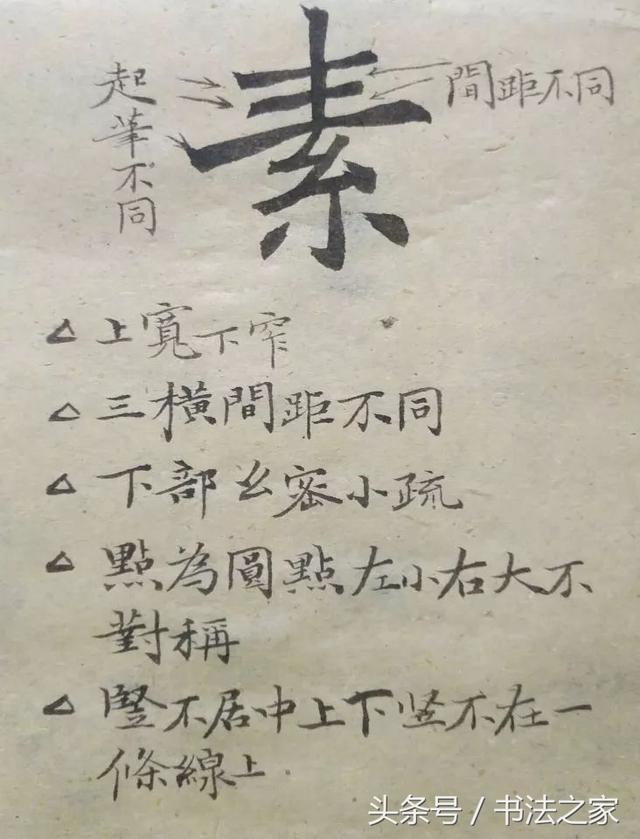 素
起筆不同
間距不同
△上寬下窄
△三橫間距不同
△下部幺密小疏
△點為圓點左小右大不
對稱
△豎不居中上下竖不在一
條線上.
头条号／书法之家